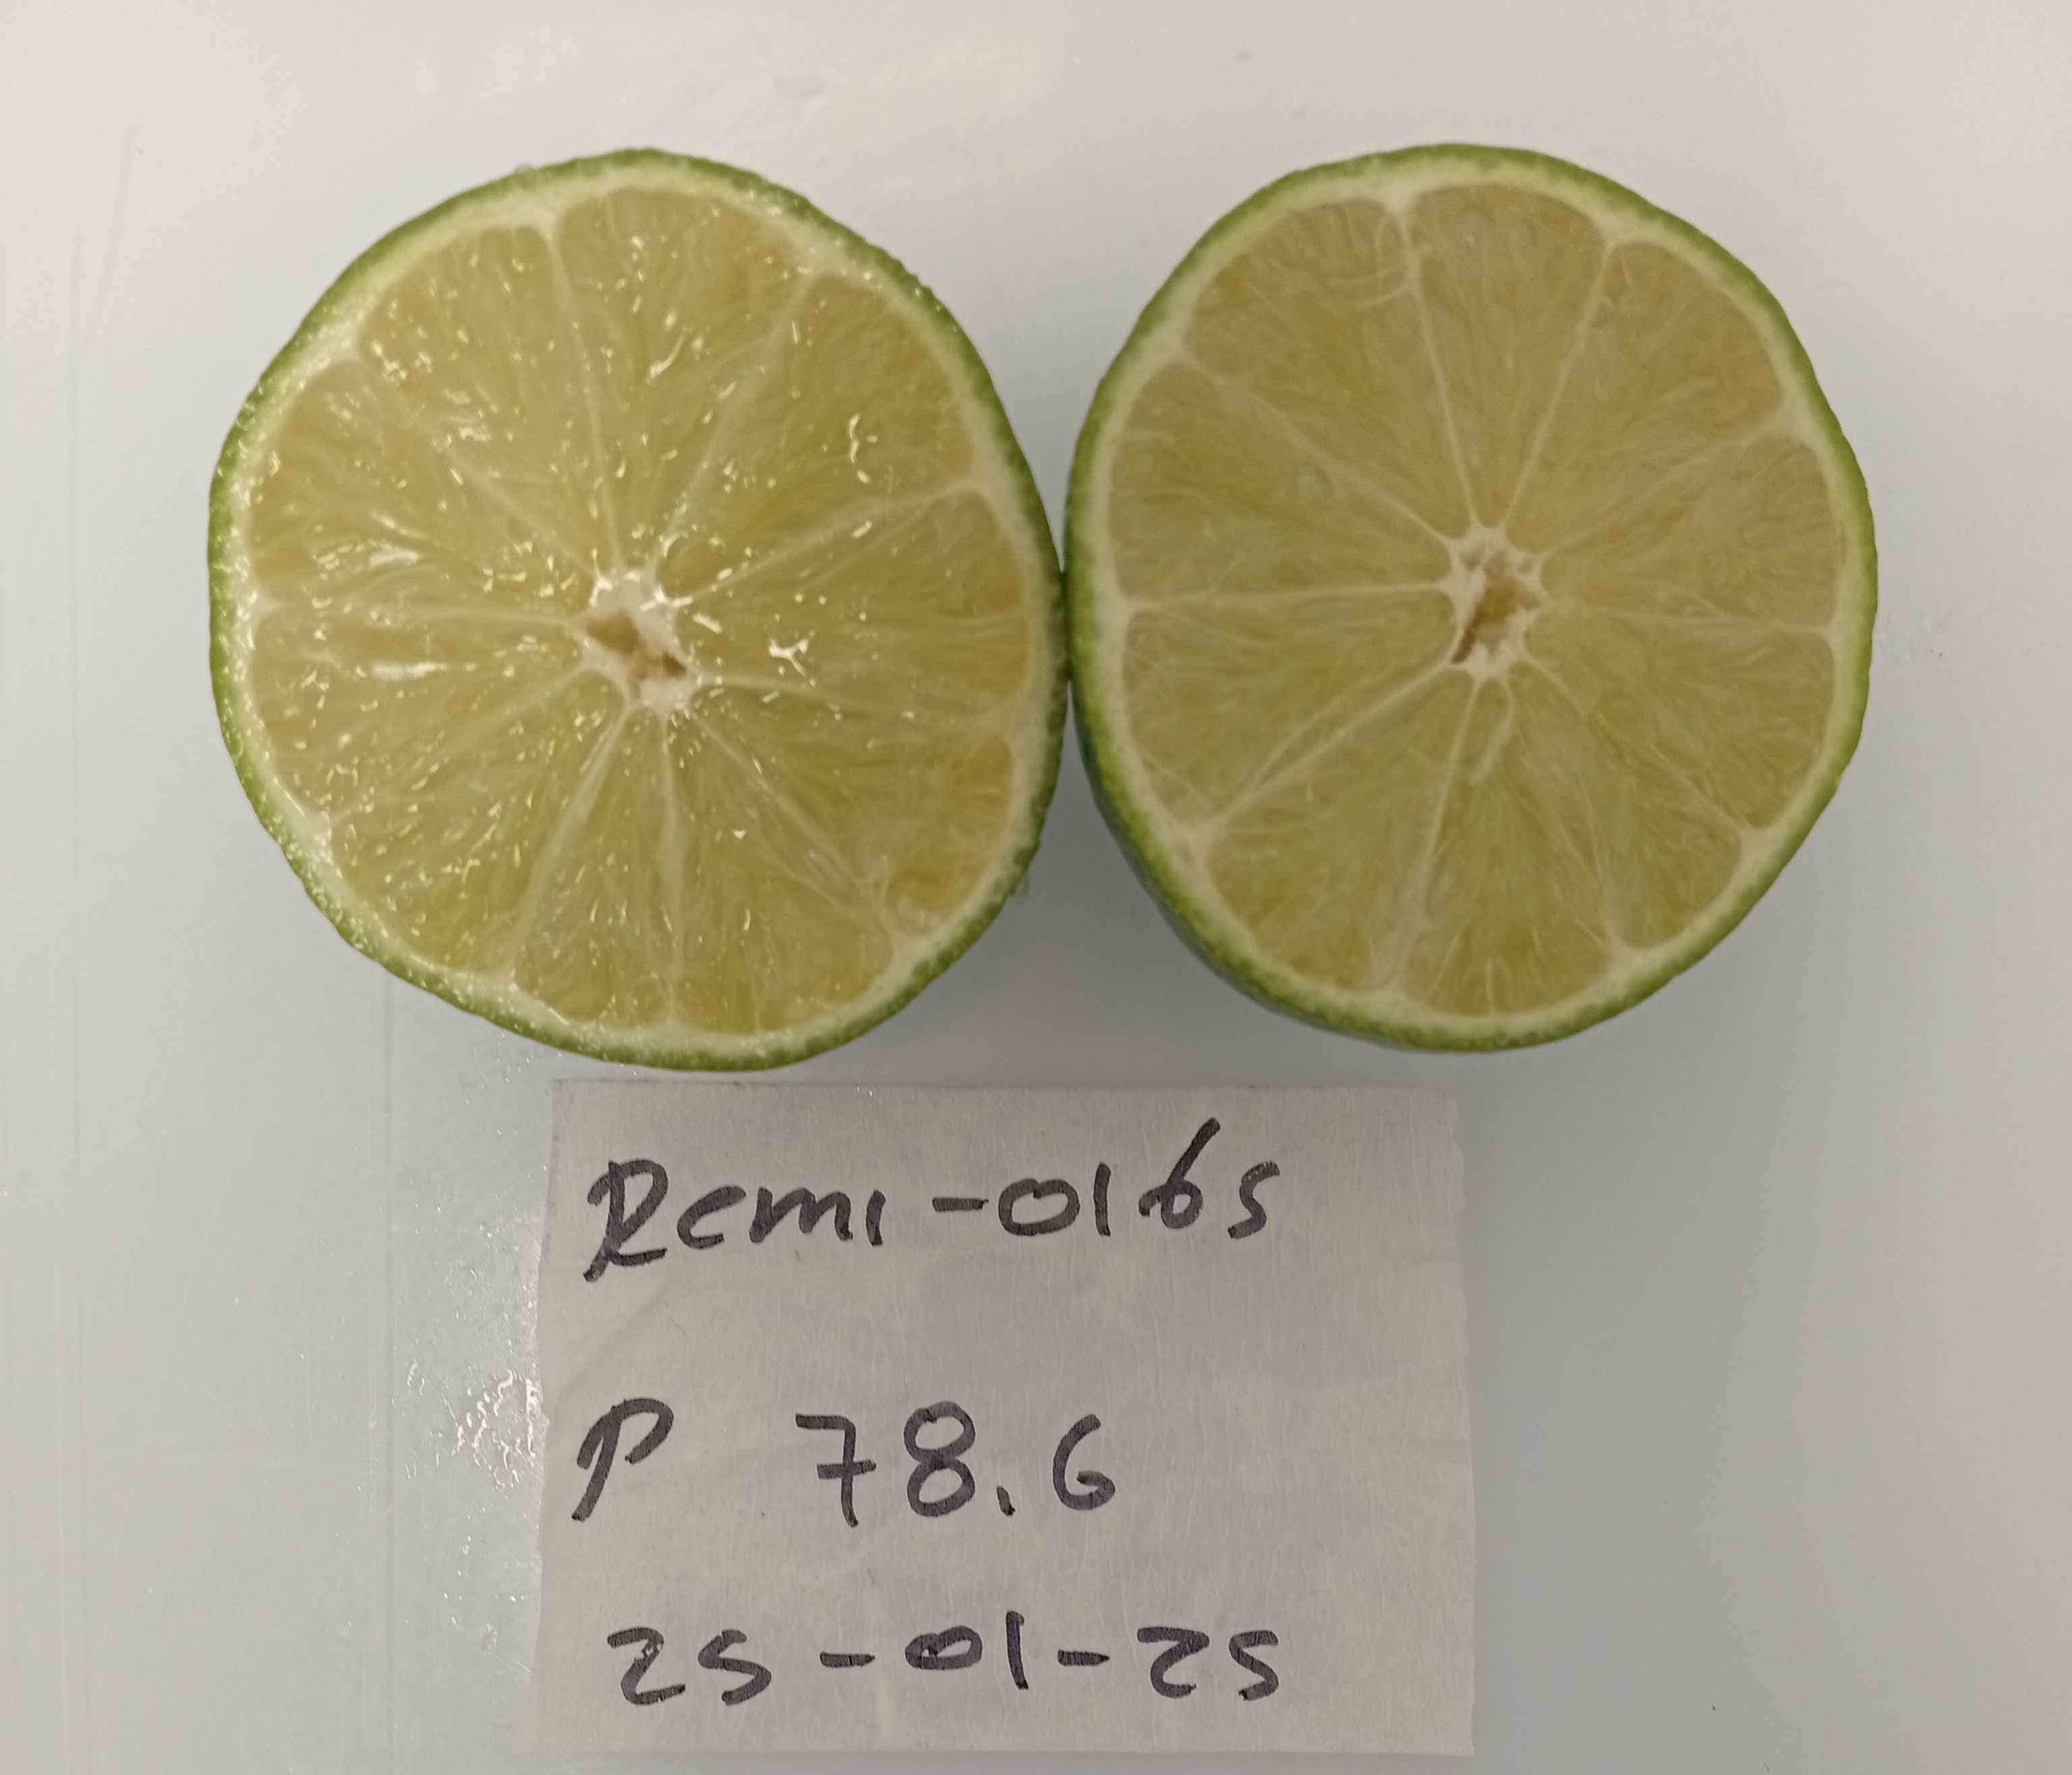 Remi-0165
P 78.6
25-01-25